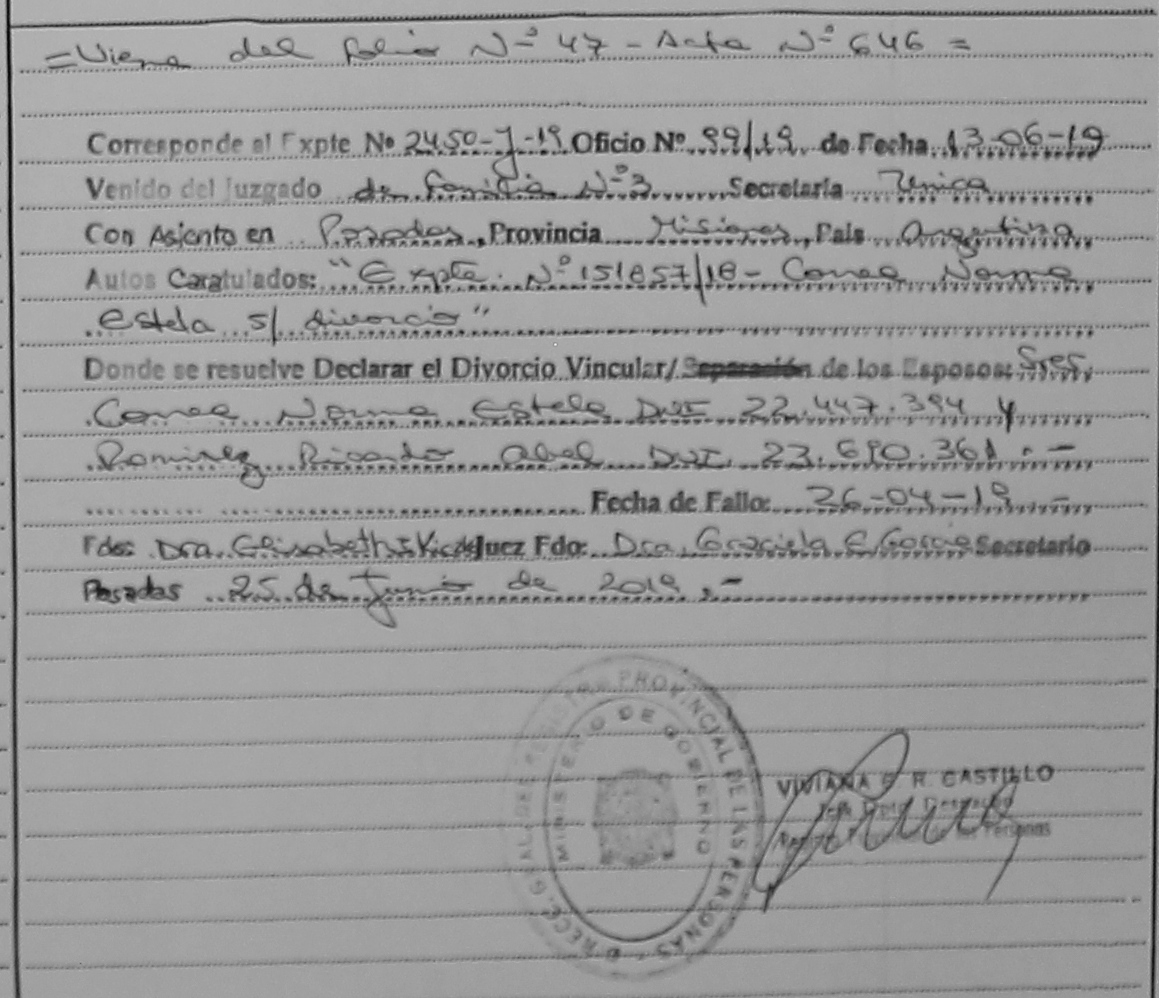 = Viene del folio Nº 47 - Acta Nº 646 =
Corresponde al Expte Nº 2450-J-19 Oficio Nº 99/19 de Fecha 13-06-19
Venido del Juzgado de Familia Nº3 Secretaria Unica
Con Asiento en Posadas, Provincia Misiones, Pais Argentina
Autos Caratulados: "Expte. Nº 151857/18 - Correa Norma
Estela s/ divorcio"
Donde se resuelve Declarar el Divorcio Vincular/Separación de los Esposos: Sres.
Correa Norma Estela DNI 22.447.394 y
Ramirez Ricardo Abel DNI. 23.690.361.-
Fecha de Fallo: 26-04-19.-
Fdo: Dra. Juez Fdo: Dra. Graciela E Garcia Secretario
Posadas 25 de Junio de 2019.-
DIRECC. GRAL. DEL REGISTRO PROVINCIAL DE LAS PERSONAS
MINISTERIO DE GOBIERNO
VIVIANA R. CASTILLO
Jefe Dpto. Despacho
Personas